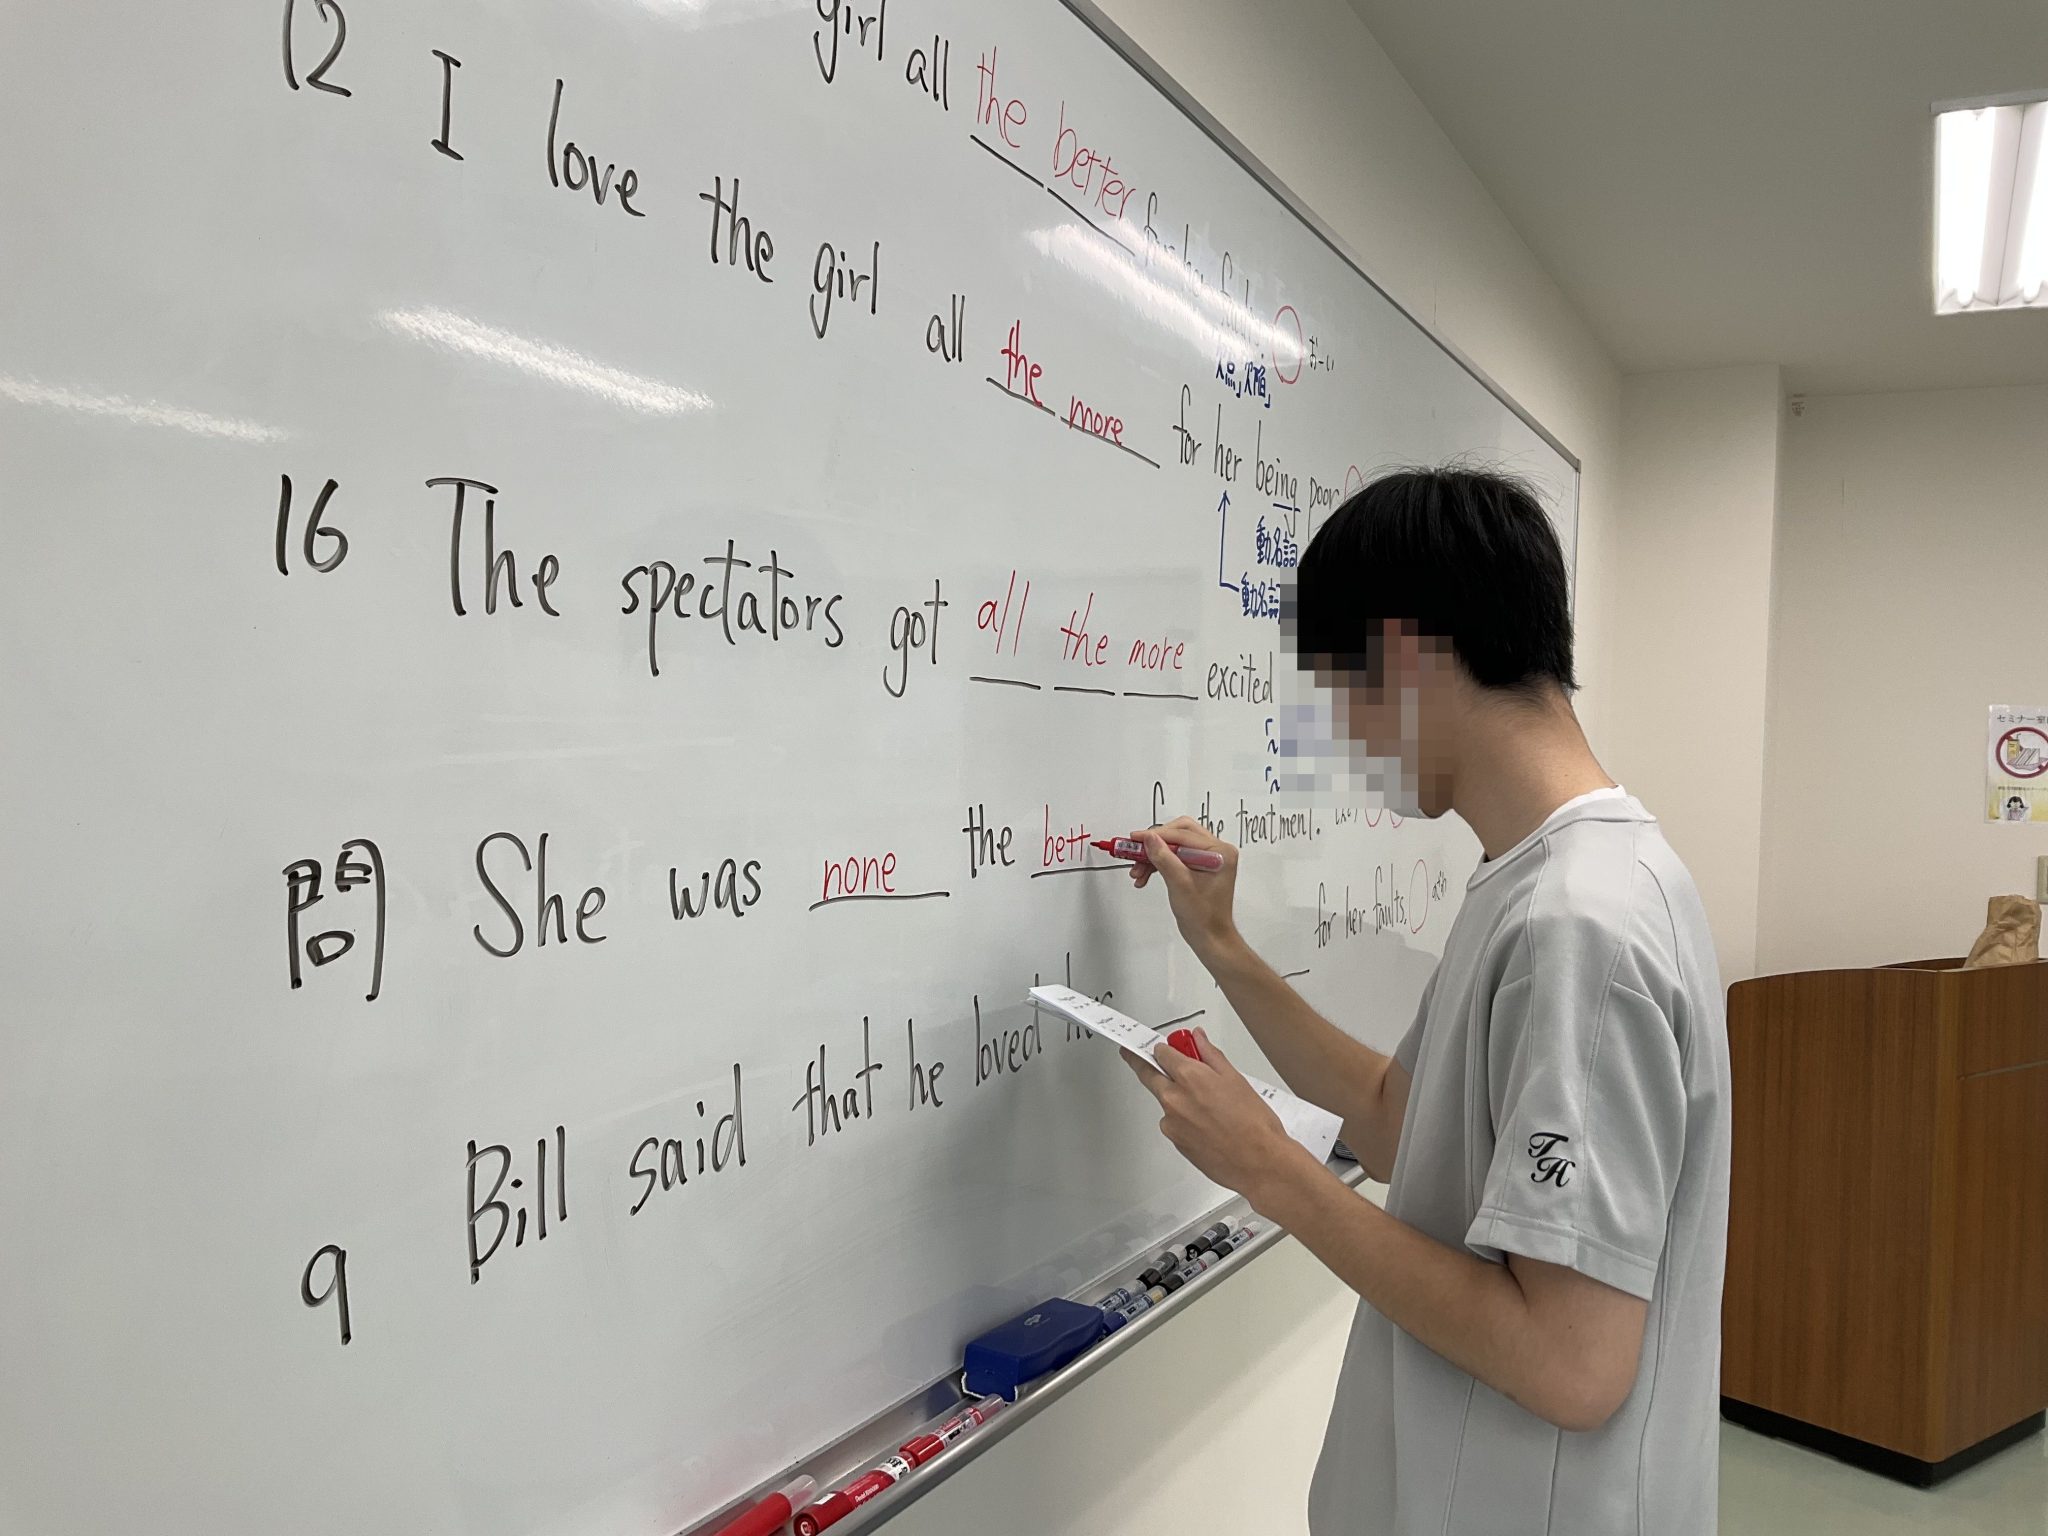 girl all the better for her faults.
欠点」欠陥」
12 I love the girl all the more for her being poor
動名詞
動名詞
16 The spectators got all the more excited
問 She was none the bett the treatment.
for her faults.
9 Bill said that he loved her
TH
セミナー室